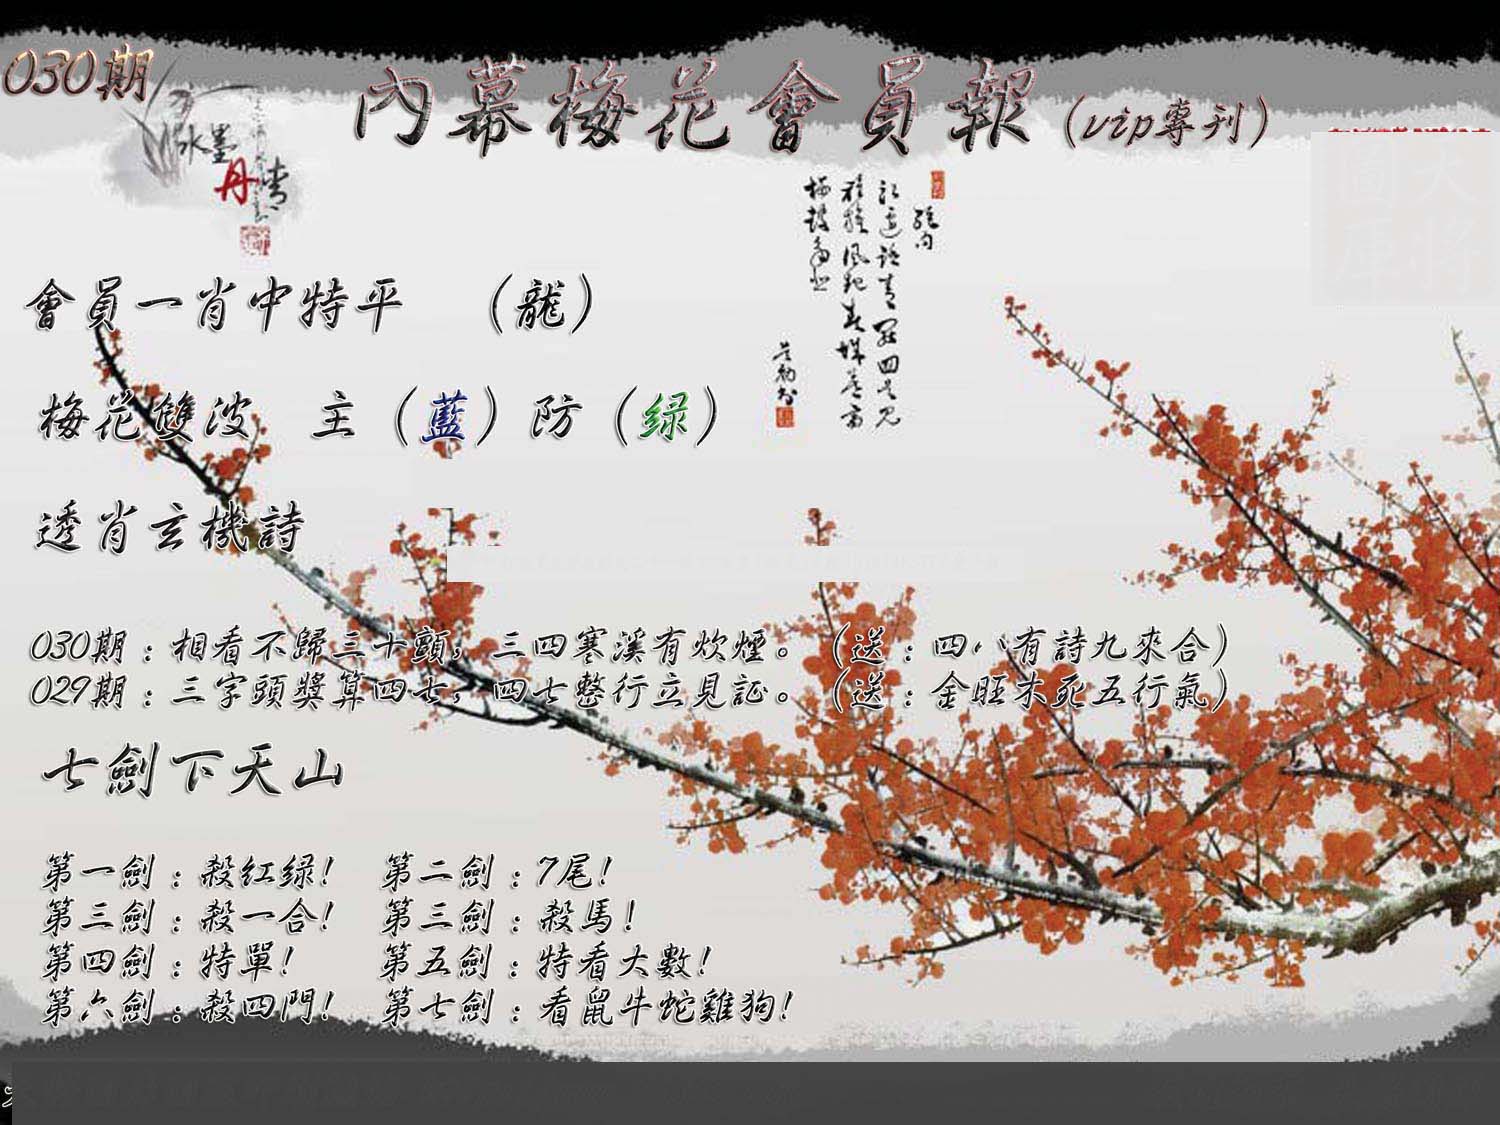 030期
內幕梅花會員報（vip專刊）
水墨
丹青
會員一肖中特平　（龍）
梅花雙波　主（藍）防（绿）
透肖玄機詩
030期：相看不歸三十頭，三四寒溪有炊煙。（送：四八有詩九來合）
029期：三字頭獎算四七，四七整行立見証。（送：金旺木死五行氣）
七劍下天山
第一劍：殺红绿！　第二劍：7尾！
第三劍：殺一合！　第三劍：殺馬！
第四劍：特單！　第五劍：特看大數！
第六劍：殺四門！　第七劍：看鼠牛蛇雞狗！